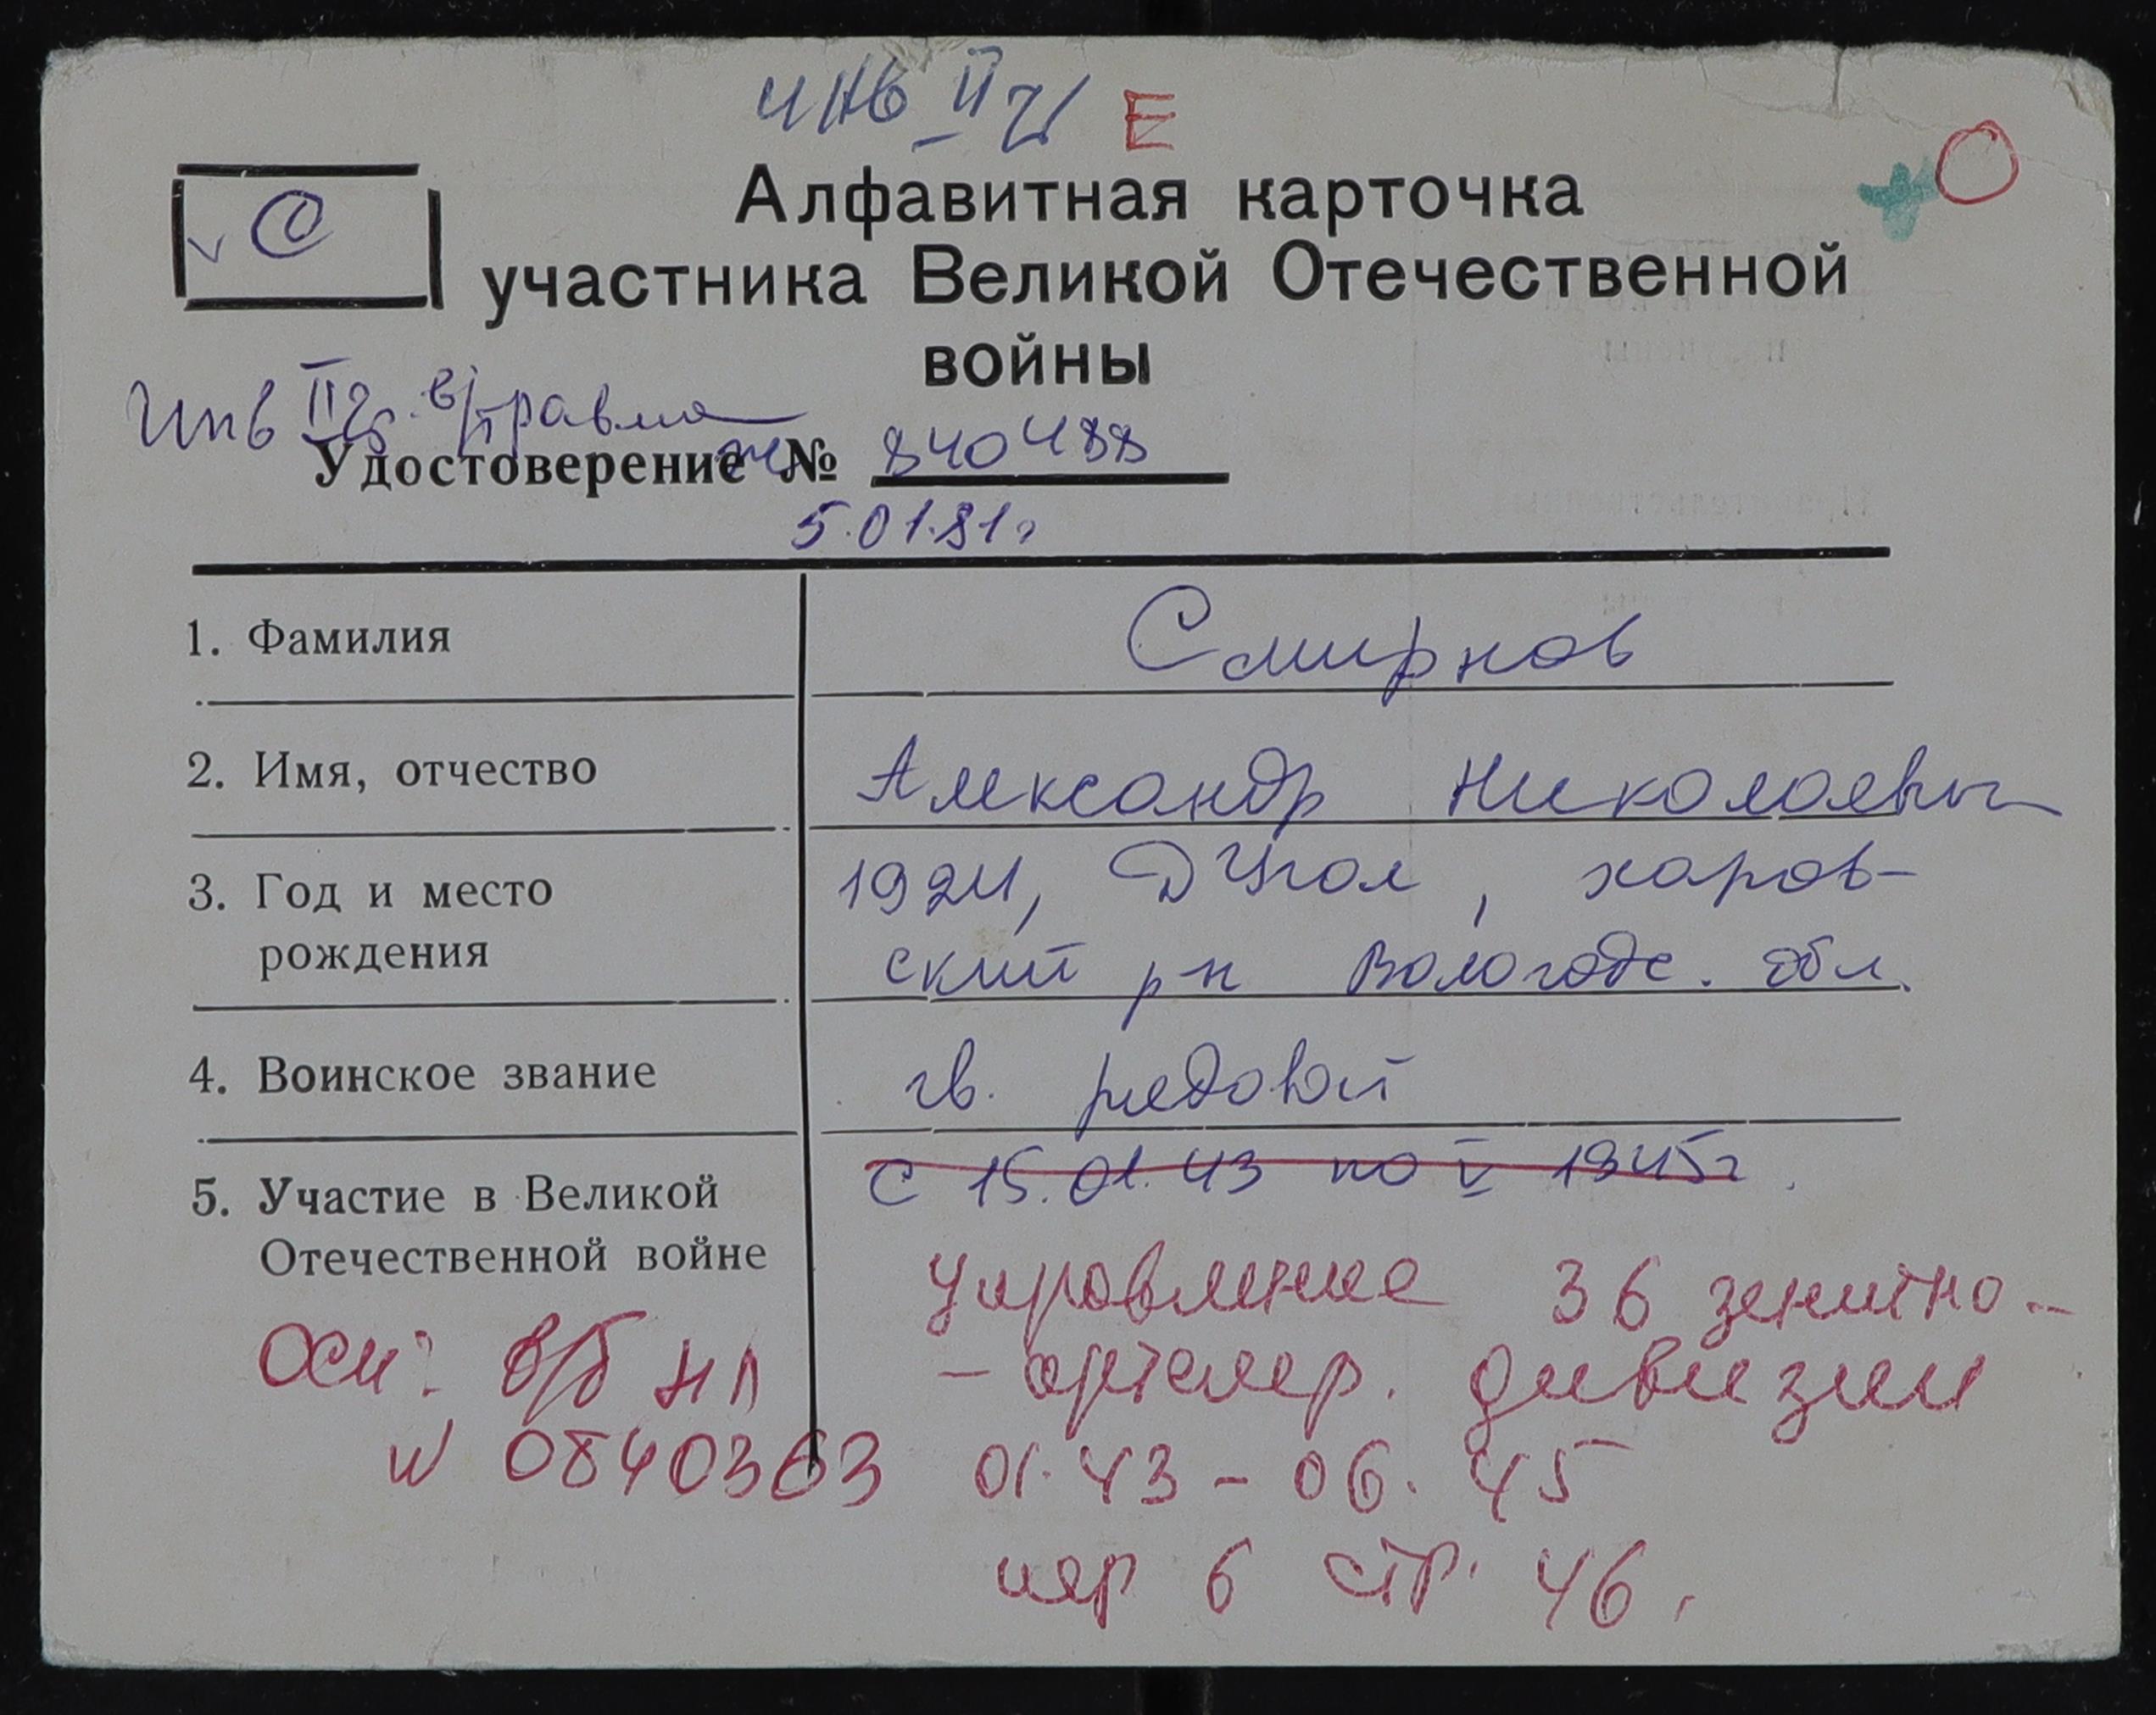 инв II гр Е
О
С
Алфавитная карточка
участника Великой Отечественной
войны
Инв II гр. в/травма
Удостоверение № 840488
5.01.81г
1. Фамилия Смирнов
2. Имя, отчество Александр Николаевич
3. Год и место рождения 1924, Д Угол, харов-
ский р-н Вологодс. обл.
4. Воинское звание гв. рядовой
5. Участие в Великой Отечественной войне с 15.01.43 по V 1945г.
управление 36 зенитно-
-артилер. дивизии
01.43 - 06.45
пер 6 стр. 46.
Осн: в/б НЛ
N 0840363